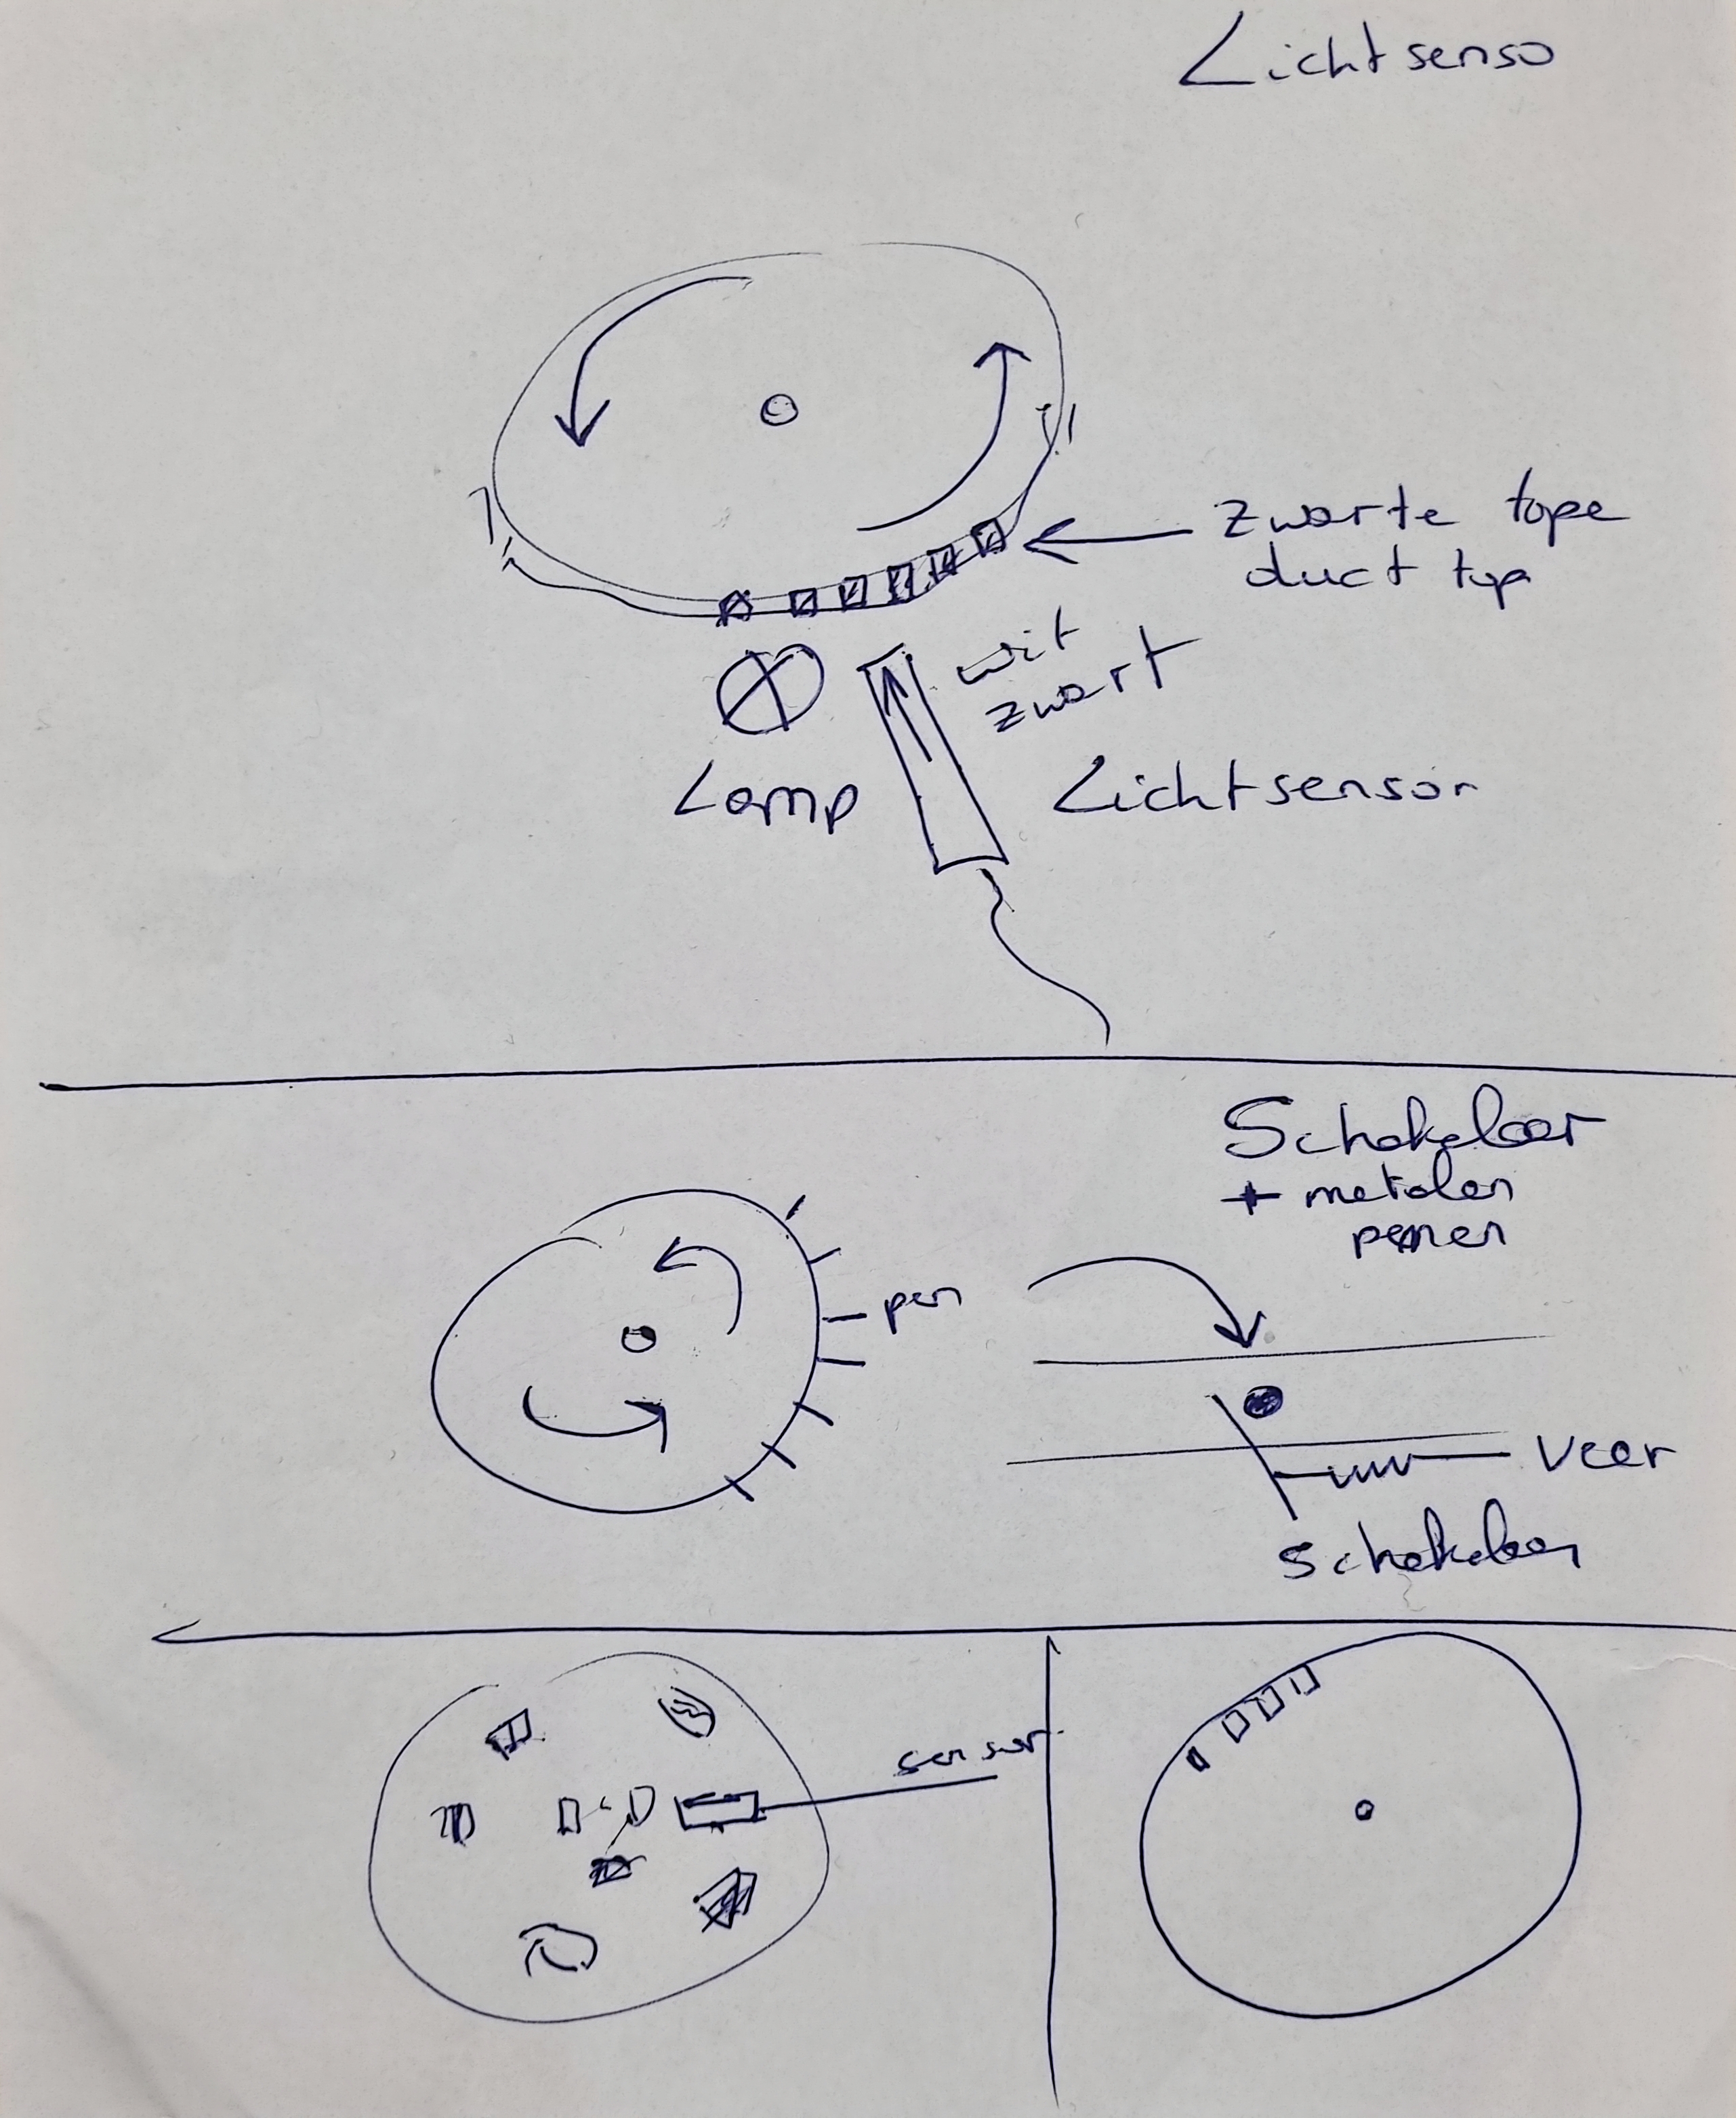 Lichtsenso
zwarte tape
duct tap
wit
zwart
Lamp
Lichtsensor
Schakelaar
+ metalen
pennen
pen
veer
schakelaar
sensor